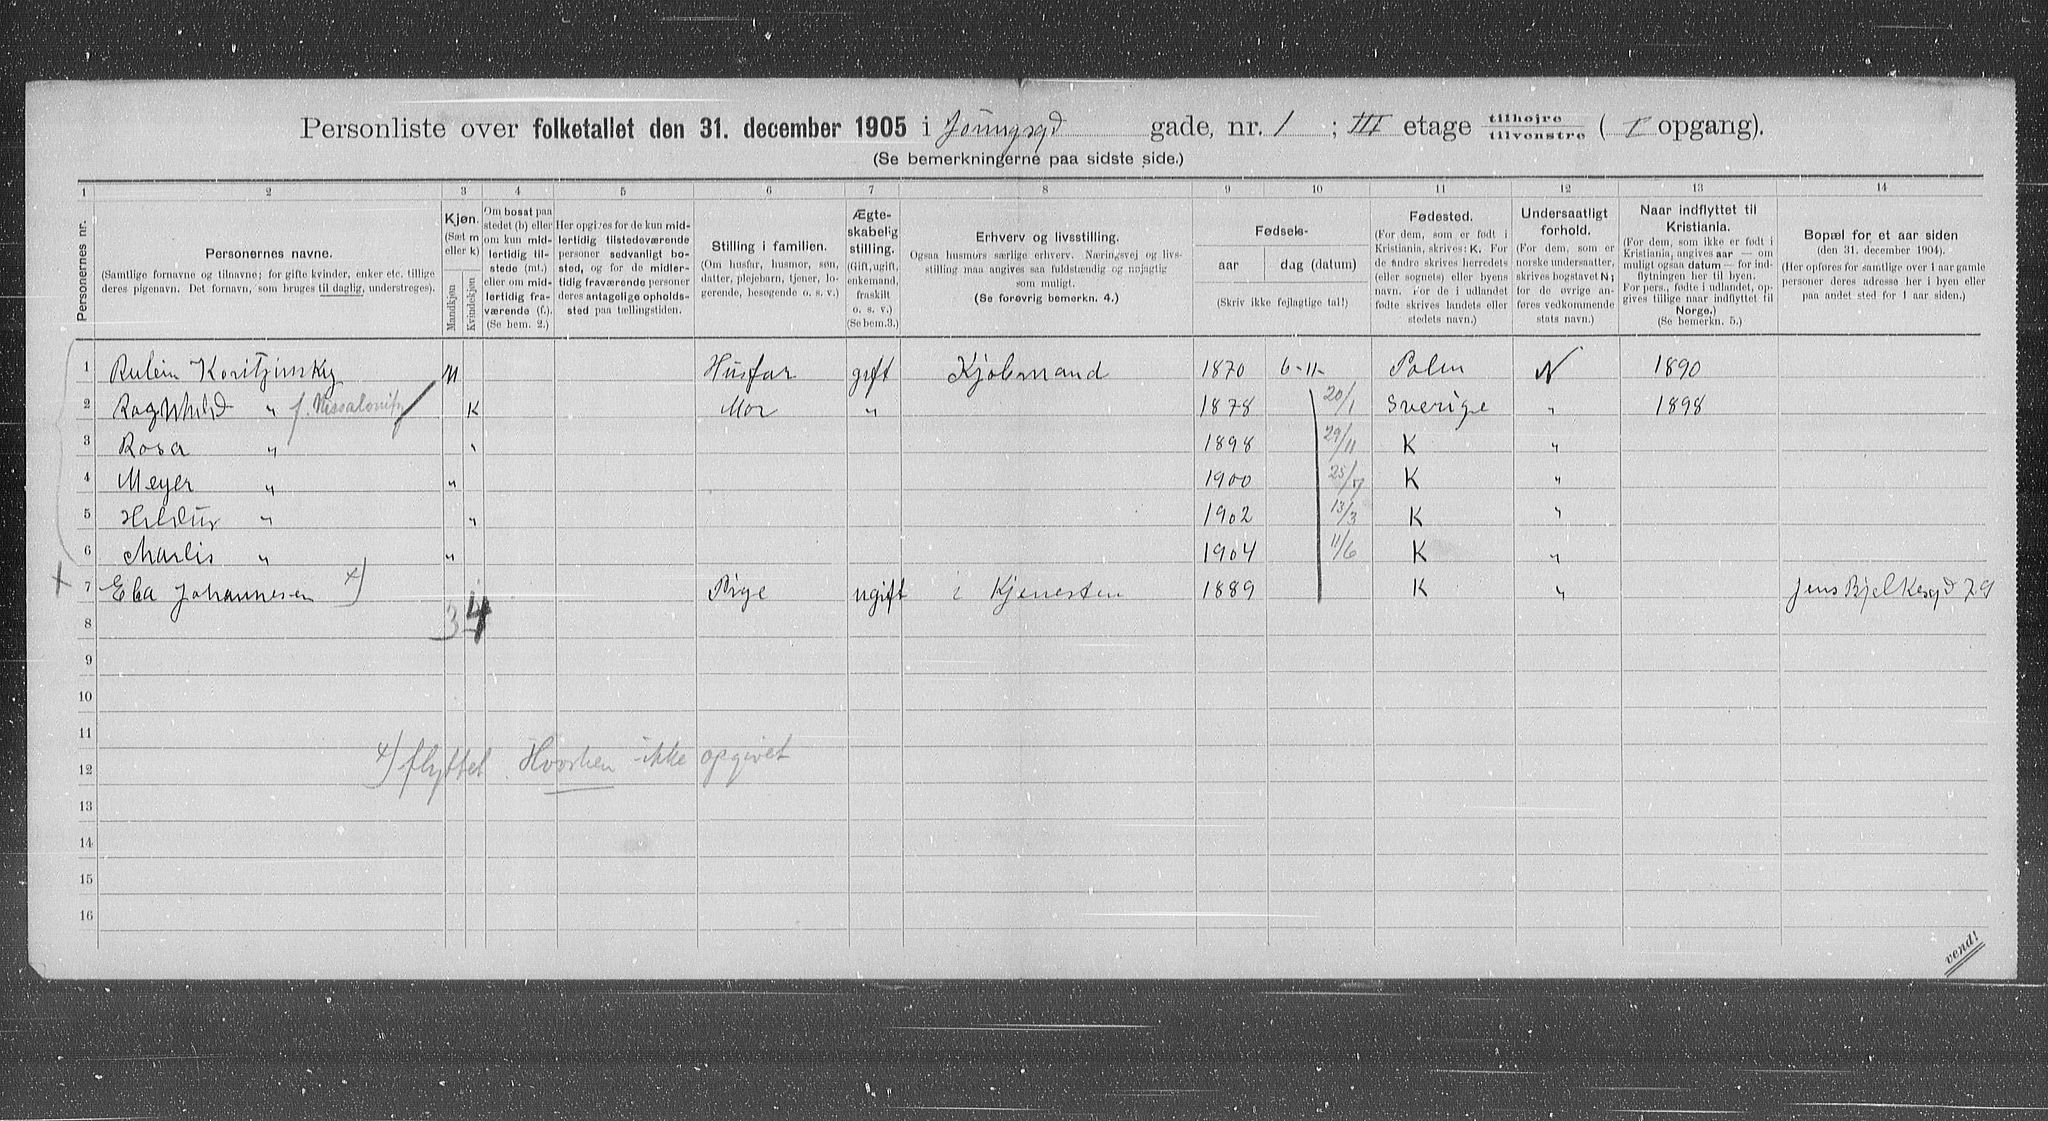 Personliste over folketallet den 31. december 1905 i Youngsgd gade, nr. 1 ; III etage tilhøjre tilvenstre ( I opgang).
(Se bemerkningerne paa sidste side.)
1 2 3 4 5 6 7 8 9 10 11 12 13 14
Personernes nr.
Personernes navne.
(Samtlige fornavne og tilnavne; for gifte kvinder, enker etc. tillige
deres pigenavn. Det fornavn, som bruges til daglig, understreges).
Kjøn.
(Sæt m
eller k)
Mandkjøn
Kvindekjøn
Om bosat paa
stedet (b) eller
om kun mid-
lertidig til-
stede (mt.)
eller om mid-
lertidig fra-
værende (f.).
(Se bem. 2.)
Her opgives for de kun mid-
lertidig tilstedeværende
personer sedvanlig bo-
sted, og for de midler-
tidig fraværende personer
deres antagelige opholds-
sted paa tællingstiden.
Stilling i familien.
(Om husfar, husmor, søn,
datter, plejebarn, tjener, lo-
gerende, besøgende o. s. v.)
Ægte-
skabelig
stilling.
(Gift, ugift,
enkemand,
fraskilt
o. s. v.)
(Se bem.3.)
Erhverv og livsstilling.
Ogsaa husmors særlige erhverv. Næringsvej og livs-
stilling maa angives saa fuldstændig og nøjagtig
som muligt.
(Se forøvrig bemerkn. 4.)
Fødsels-
aar dag (datum)
(Skriv ikke fejlagtige tal!)
Fødested.
(For dem, som er født i
Kristiania, skrives: K. For
de andre skrives herredets
(eller sognets) eller byens
navn. For de i udlandet
fødte skrives landets eller
stedets navn.)
Undersaatligt
forhold.
(For dem, som er
norske undersaatter,
skrives bogstavet N;
for de øvrige an-
føres vedkommende
stats navn.)
Naar indflyttet til
Kristiania.
(For dem, som ikke er født i
Kristiania, angives aar — om
muligt ogsaa datum — for ind-
flytningen her til byen.
For pers., fødte i udlandet, op-
gives tillige naar indflyttet til
Norge.)
(Se bemerkn. 5.)
Bopæl for et aar siden
(den 31. december 1904).
(Her opføres for samtlige over 1 aar gamle
personer deres adresse her i byen eller
paa andet sted for 1 aar siden.)
1 Rubin Koritzinsky M Husfar gift Kjøbmand 1870 6-11- Polen N 1890
2 Raghhild " f. Nissalowitz K Mor " 1878 20/1 Sverige " 1898
3 Rosa " " 1898 29/11 K "
4 Meyer " " 1900 25/7 K "
5 Hildur " " 1902 13/3 K "
6 Charlis " " 1904 11/6 K "
7 Eba Johannesen x) Pige ugift i Kjenesten 1889 K " Jens Bjelkesgd 79
8 3 4
9
10
11
12 x) flyttet. Hvorhen ikke opgivet
13
14
15
16
vend!